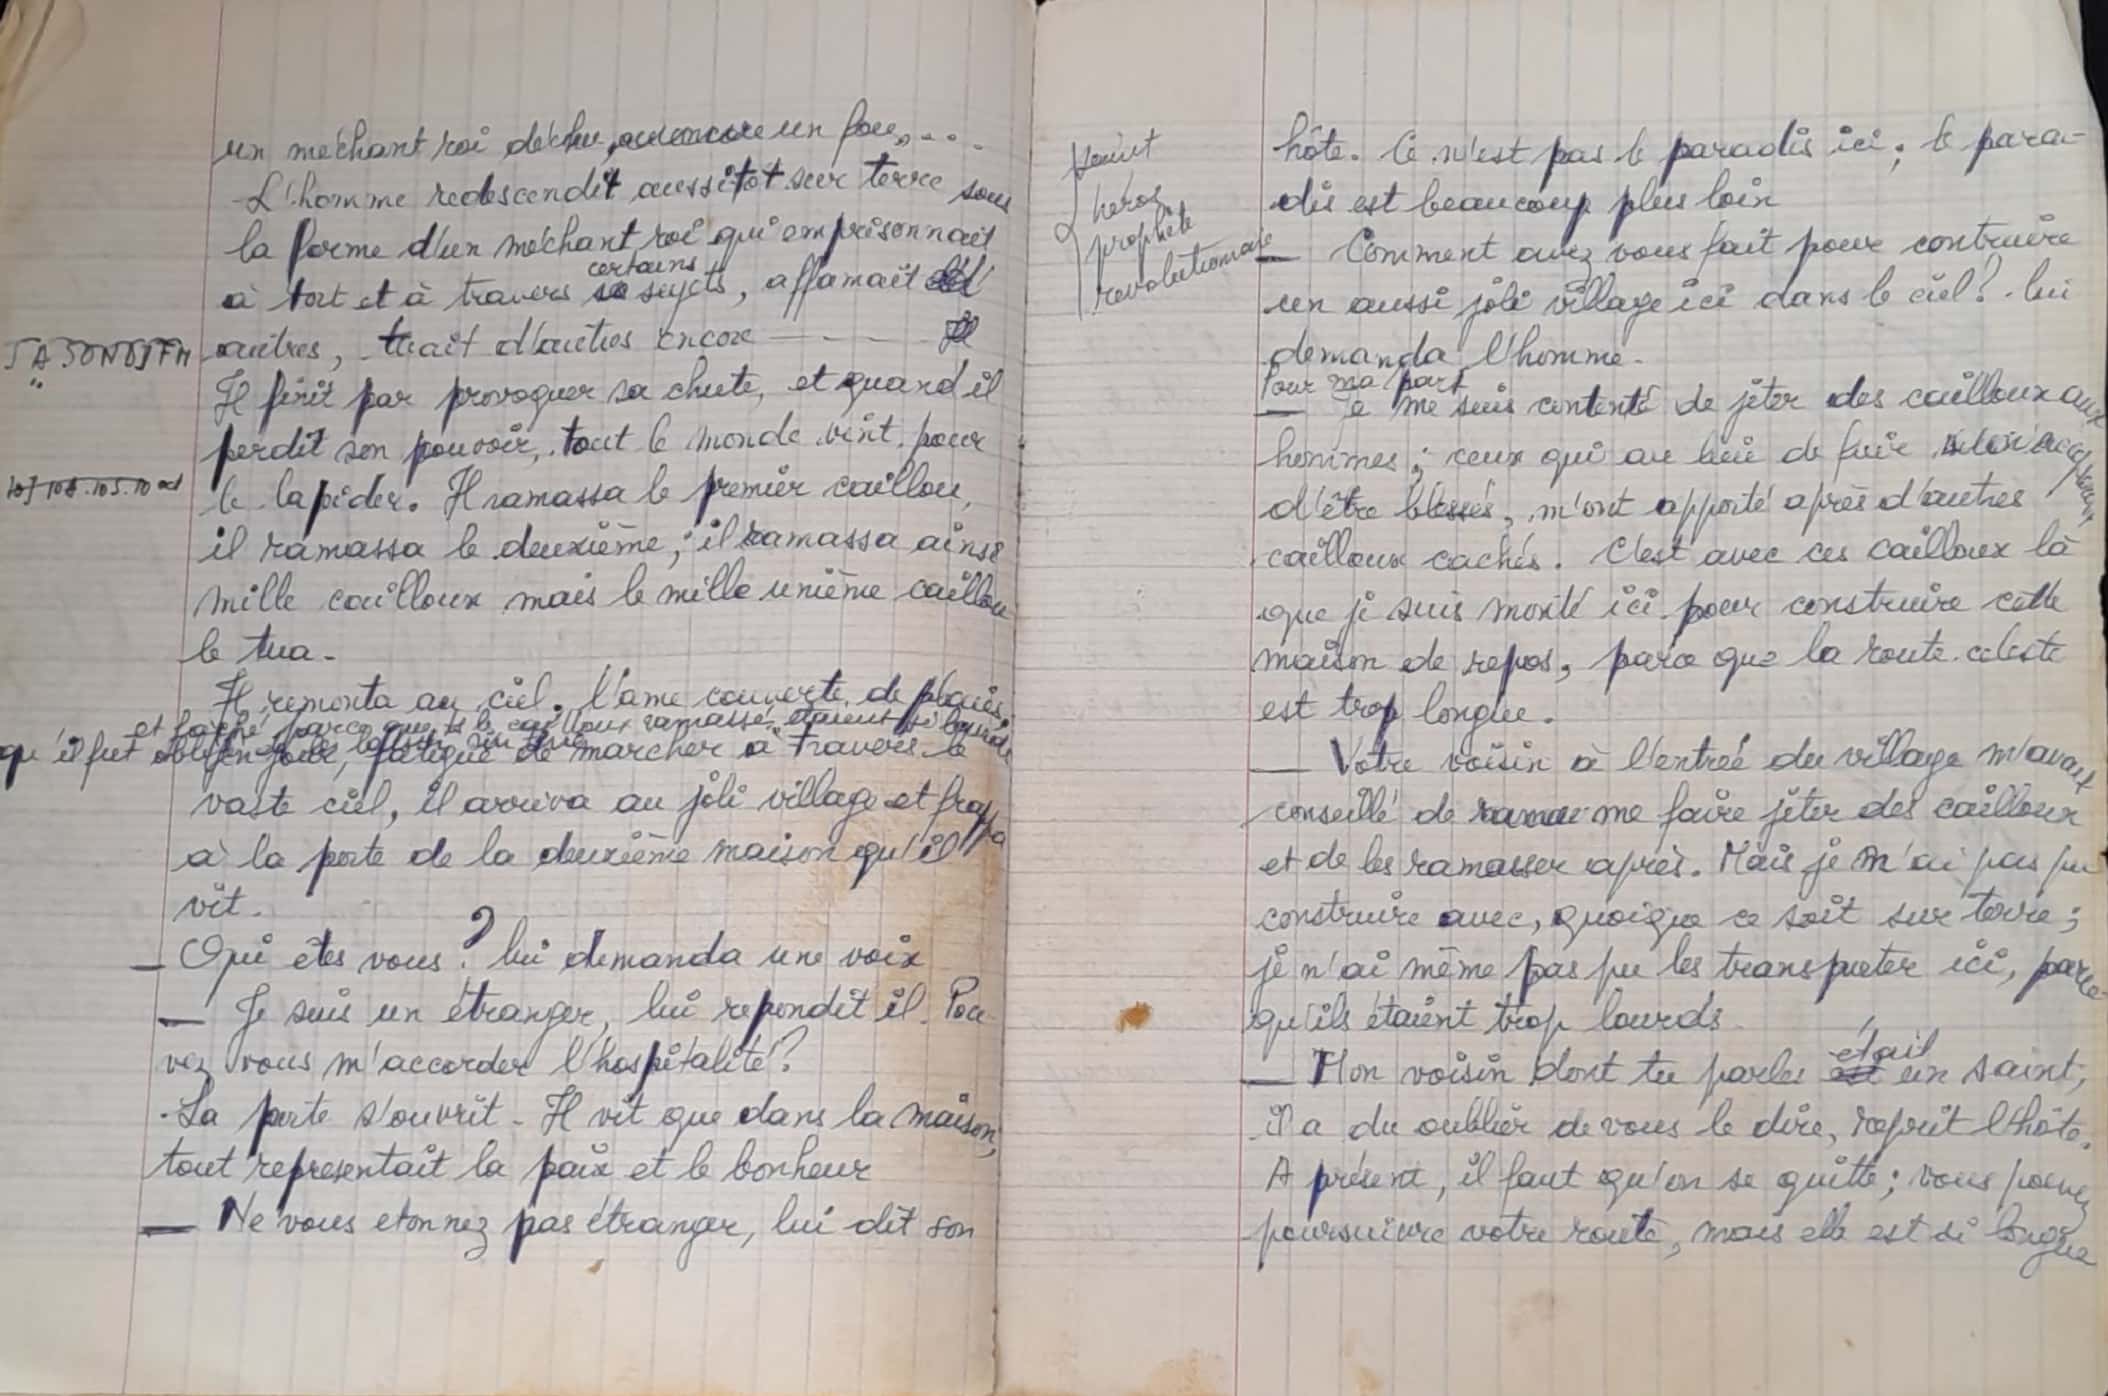 un méchant roi déchu, ou encore un fou,...
L'homme redescendit aussitôt sur terre sous
la forme d'un méchant roi qui emprisonnait
à tort et à travers certains sujets, affamait
autres, tuait d'autres encore - - - -
Il finit par provoquer sa chute, et quand il
perdit son pouvoir, tout le monde vint pour
le lapider. Il ramassa le premier caillou,
il ramassa le deuxième; il ramassa ainsi
mille cailloux mais le mille unième caillou
le tua.
Il remonta au ciel, l'ame couverte de plaies,
et fâché parce que les cailloux ramassés étaient si lourds
qu'il fut obligé
fatigué de marcher à travers le
vaste ciel, il arriva au joli village et frappa
à la porte de la deuxième maison qu'il
vit.
— Qui êtes vous? lui demanda une voix
— Je suis un étranger, lui repondit il. Pou-
vez vous m'accorder l'hospitalité?
La porte s'ouvrit. Il vit que dans la maison,
tout representait la paix et le bonheur
— Ne vous etonnez pas étranger, lui dit son
J A S O N D J F M
saint
héros
prophète
revolutionnaire
hôte. Ce n'est pas le paradis ici; le para-
dis est beaucoup plus loin
— Comment avez vous fait pour contruire
un aussi joli village ici dans le ciel? lui
demanda l'homme.
Pour ma part
— Je me suis contenté de jéter des cailloux aux
hommes; ceux qui au lieu de fuir
d'être blessés, m'ont apporté après d'autres
cailloux cachés. C'est avec ces cailloux là
que je suis monté ici pour construire cette
maison de repos, parce que la route celeste
est trop longue.
— Votre voisin à l'entrée du village m'avait
conseillé de me faire jéter des cailloux
et de les ramasser après. Mais je n'ai pas pu
construire avec, quoique ce soit sur terre;
je n'ai même pas pu les transporter ici, parce
qu'ils étaient trop lourds
— Mon voisin dont tu parles était un saint,
il a du oublier de vous le dire, reprit l'hôte.
A présent, il faut qu'on se quitte; vous pouvez
poursuivre votre route, mais elle est si longue